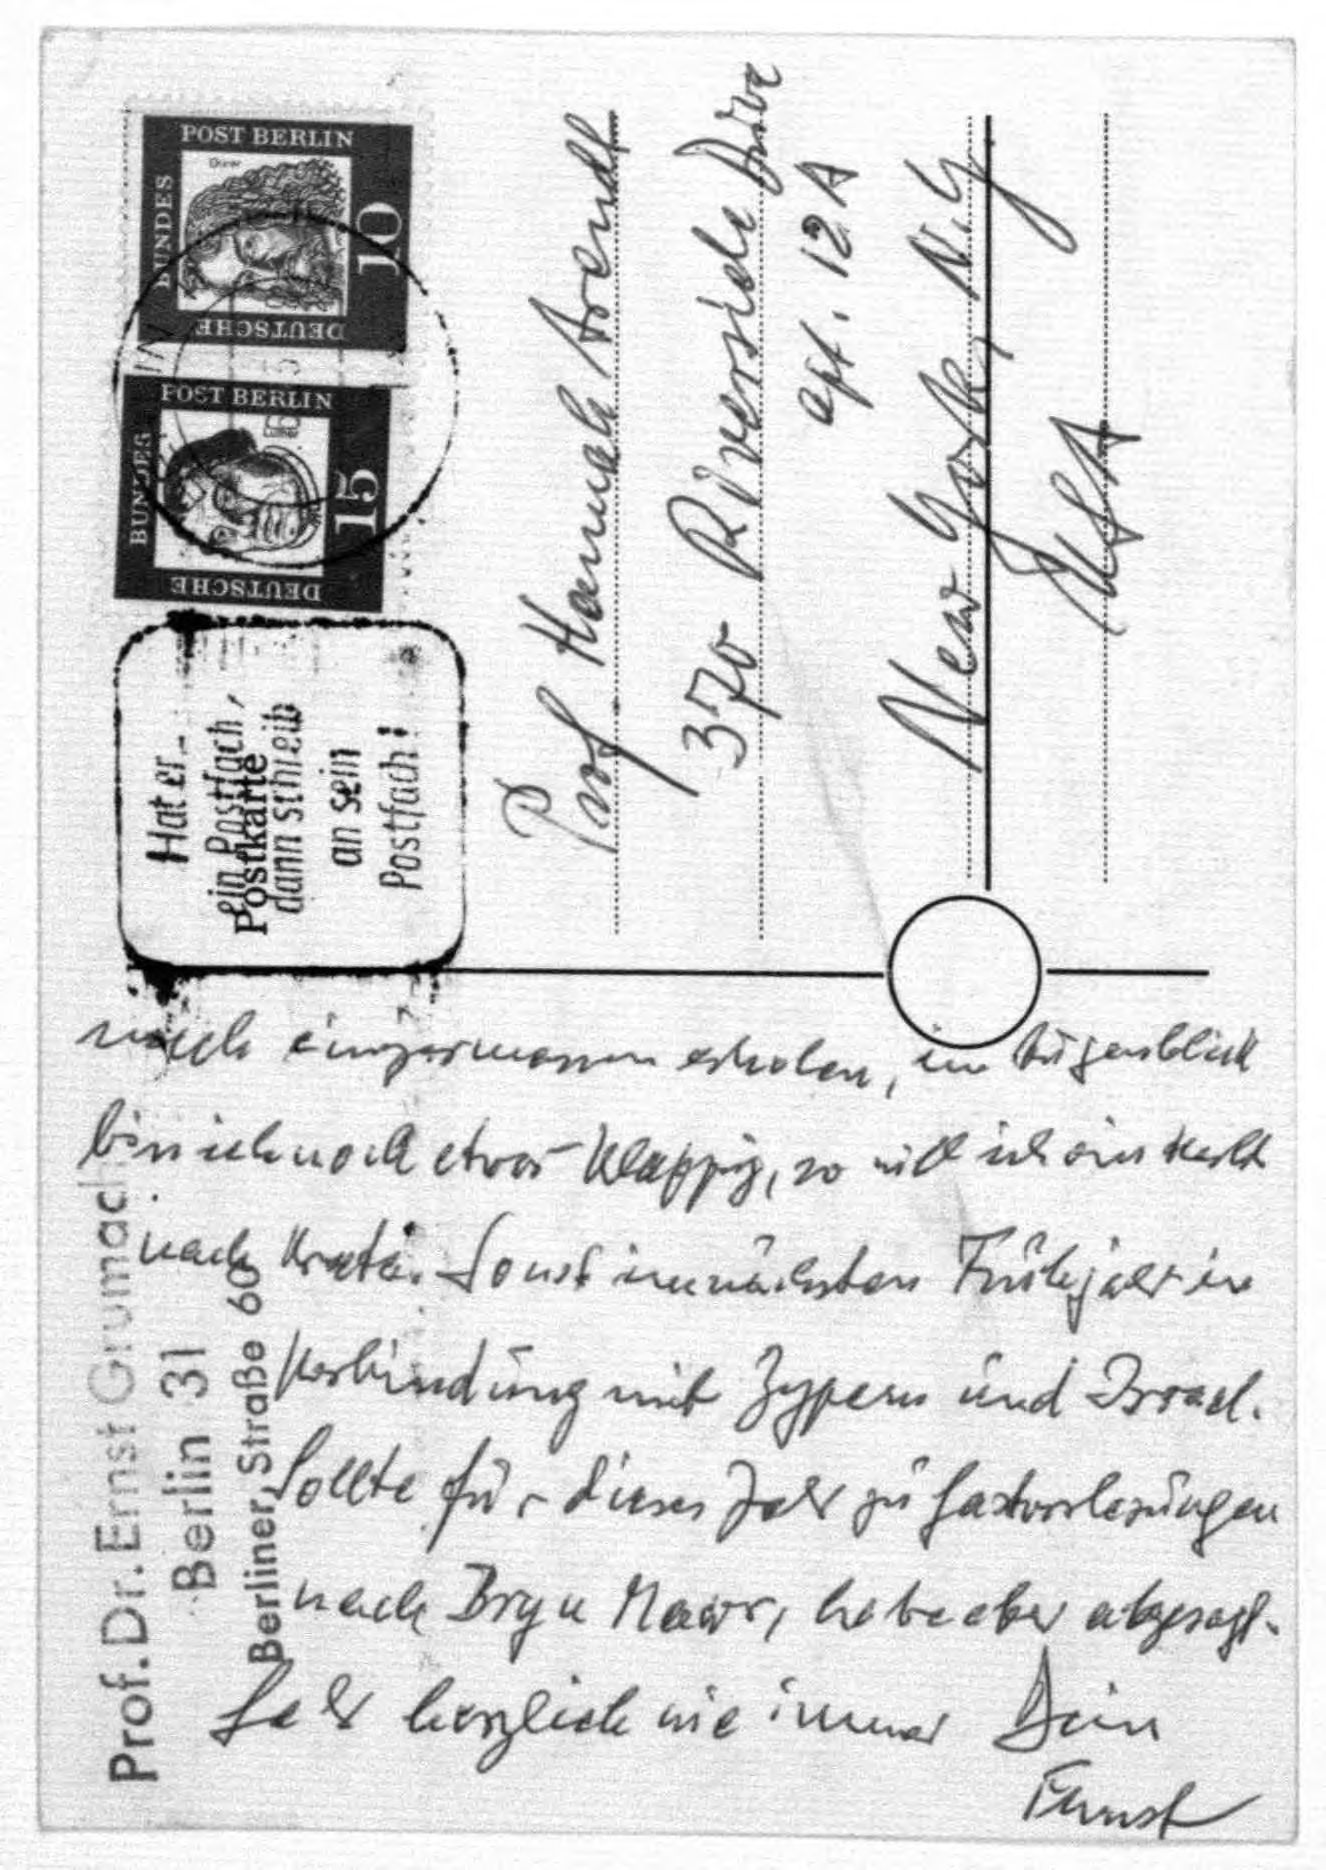 POST BERLIN
Dürer
BUNDES
10
DEUTSCHE
POST BERLIN
Luther
BUNDES
15
DEUTSCHE
Hat er
ein Postfach,
Postkarte
dann schreib
an sein
Postfach!
Prof Hannah Arendt
370 Riverside Drive
apt. 12 A
New York, N.Y.
USA
mich einigermassen erholen, im Augenblick
bin ich noch etwas klapprig, so will ich im Herbst
nach Kreta. Sonst im nächsten Frühjahr in
Verbindung mit Zypern und Israel.
Sollte für dieses Jahr zu Gastvorlesungen
nach Bryn Mawr, habe aber abgesagt.
Sehr herzlich wie immer Dein
Ernst
Prof. Dr. Ernst Grumach
Berlin 31
Berliner Straße 60